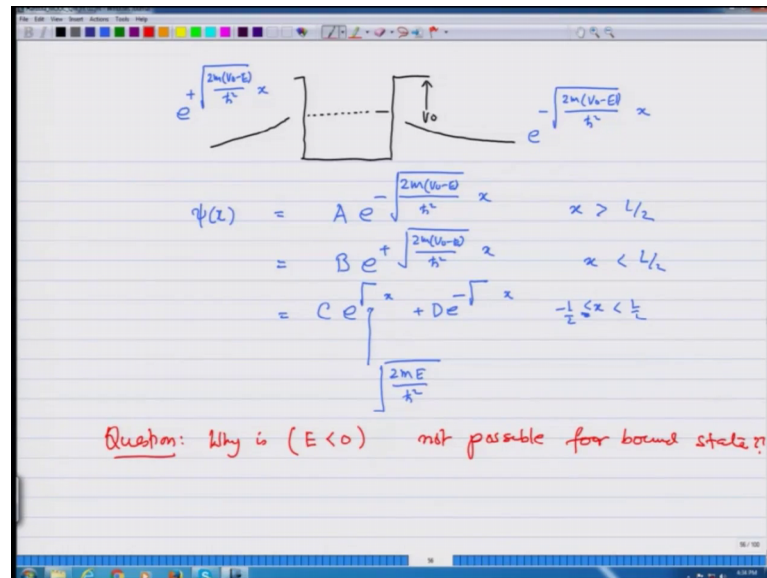 File Edit View Insert Actions Tools Help
e^{+√(2m(V₀-E)/ħ²) x}
V₀
e^{-√(2m(V₀-E)/ħ²) x}
ψ(x) = A e^{-√(2m(V₀-E)/ħ²) x} x > L/2
= B e^{+√(2m(V₀-E)/ħ²) x} x < L/2
= C e^{√ x} + D e^{-√ x} -L/2 ≤ x < L/2
√(2mE/ħ²)
Question: Why is (E<0) not possible foor bound state??
56 / 100
56
6:36 PM